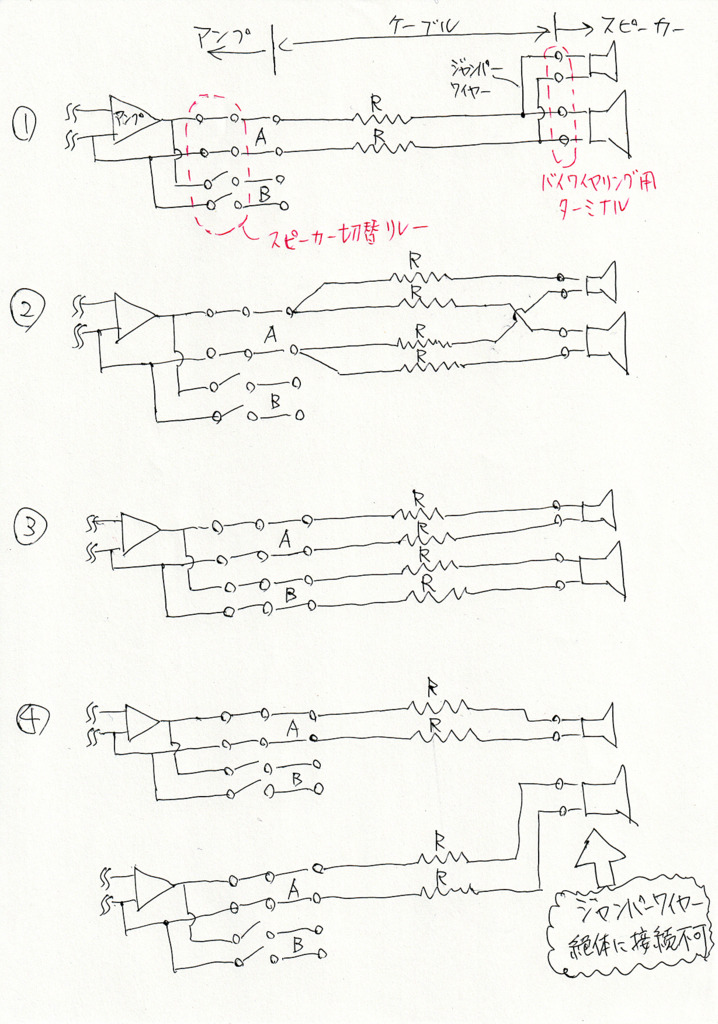 アンプ ケーブル スピーカー
ジャンパー
ワイヤー
①
アンプ
R
A
R
B
バイワイヤリング用
ターミナル
スピーカー切替リレー
②
R
R
A
R
R
B
③
R
A
R
R
B
R
④
R
A
R
B
R
A
R
B
ジャンパーワイヤー
絶体に接続不可